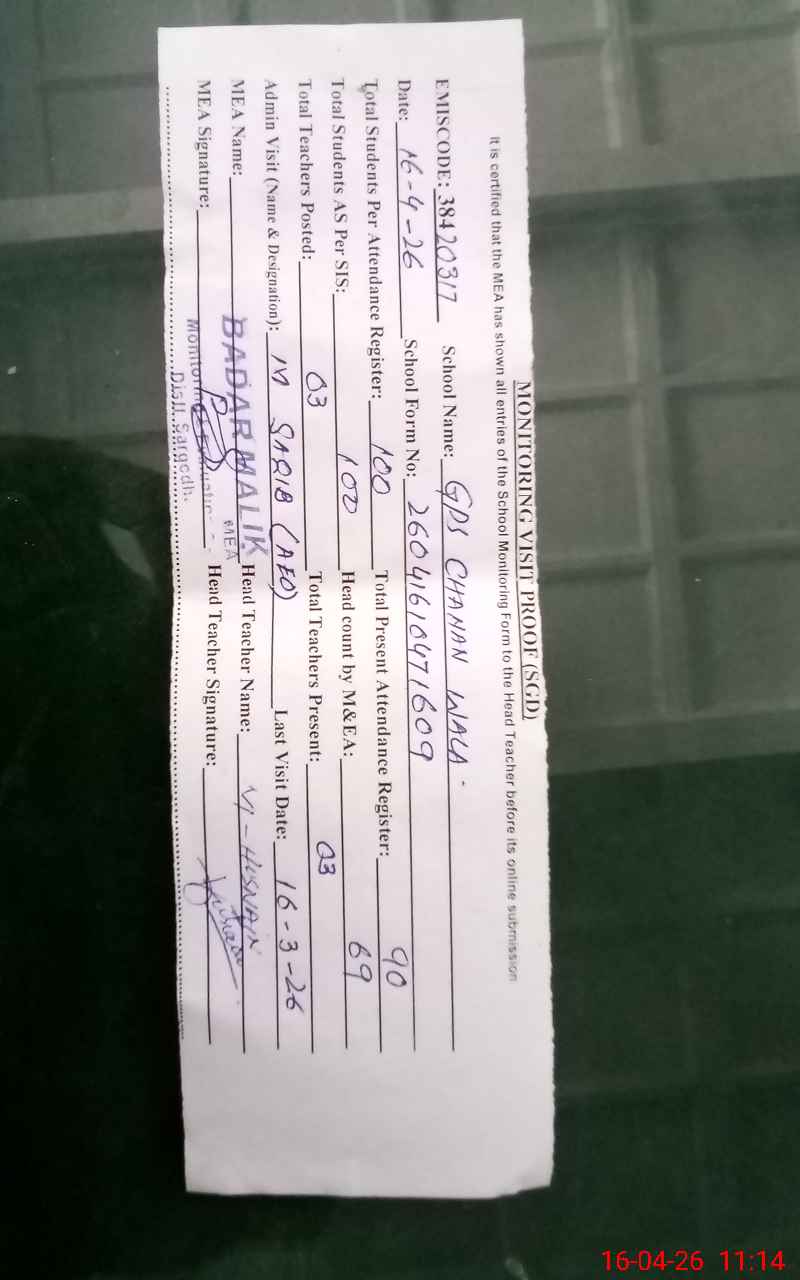 MONITORING VISIT PROOF (SGD)
It is certified that the MEA has shown all entries of the School Monitoring Form to the Head Teacher before its online submission
EMISCODE: 38420317 School Name: GPS CHANAN WALA
Date: 16-4-26 School Form No: 26041610471609
Total Students Per Attendance Register: 100 Total Present Attendance Register: 90
Total Students AS Per SIS: 100 Head count by M&EA: 69
Total Teachers Posted: 03 Total Teachers Present: 03
Admin Visit (Name & Designation): M SAQIB (AEO) Last Visit Date: 16-3-26
MEA Name: BADAR MALIK Head Teacher Name: M-HUSNAIN
MEA
MEA Signature: Head Teacher Signature:
Monitoring
Distt. Sargodh
16-04-26 11:14